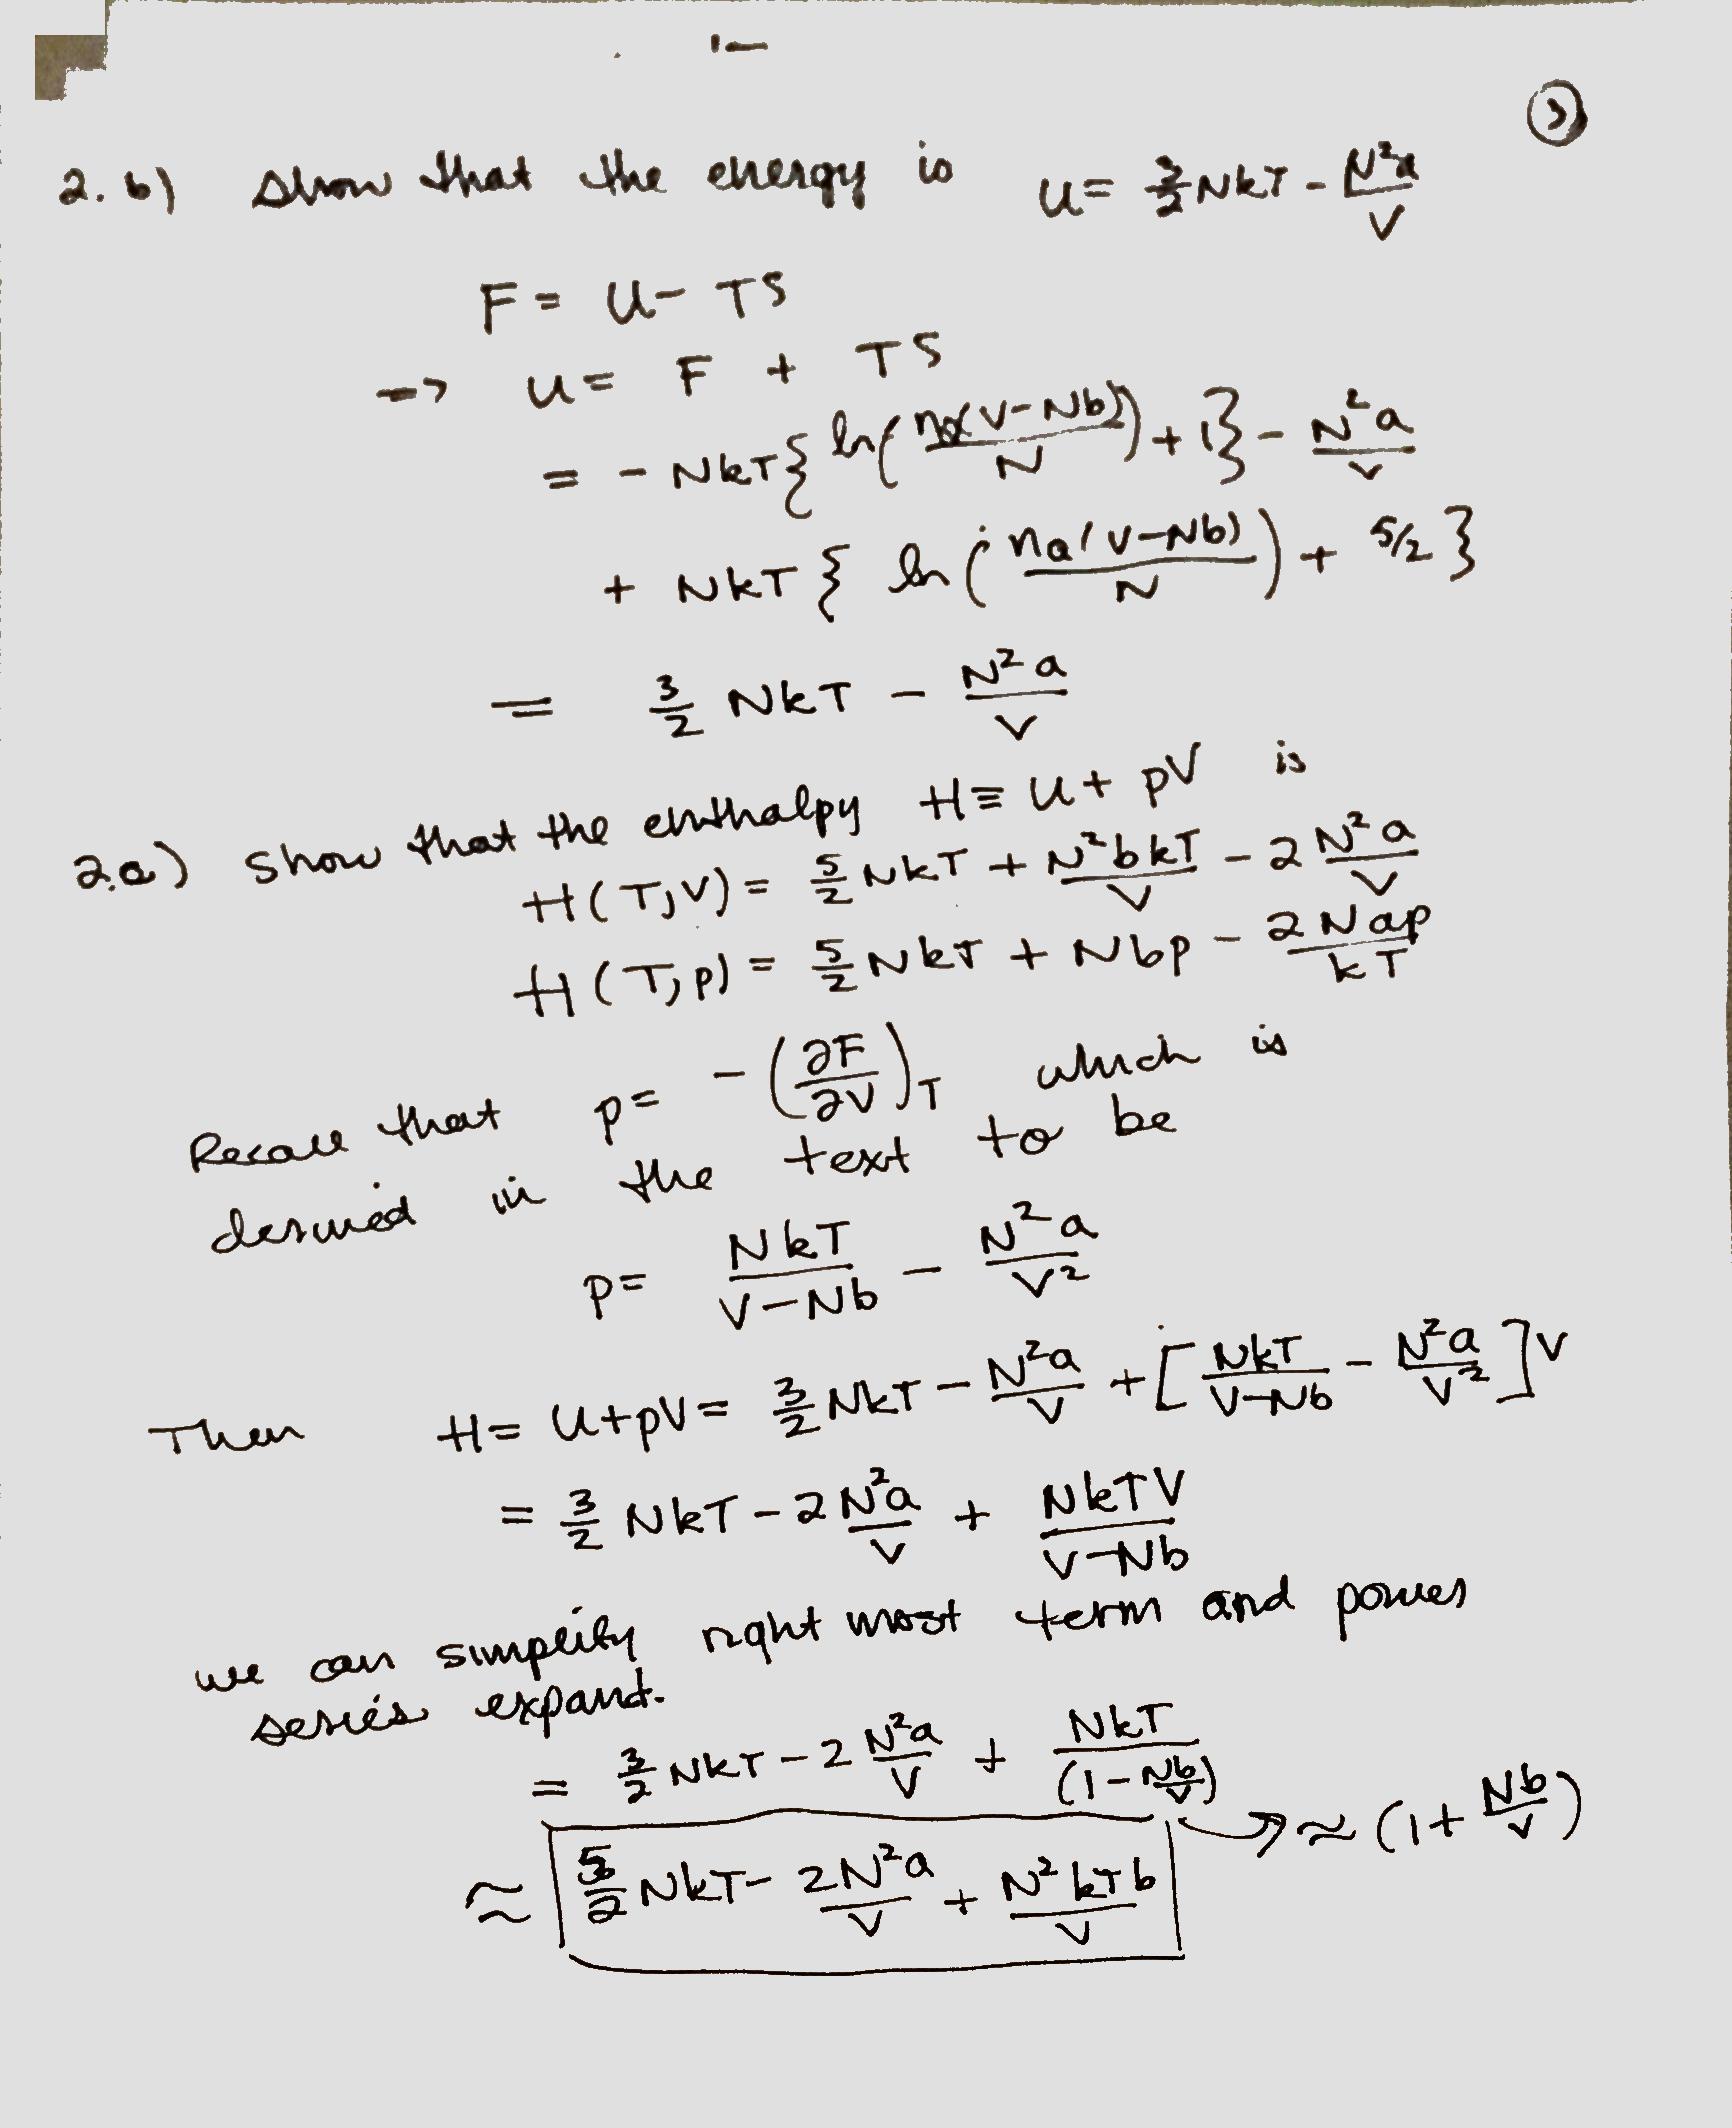 ③
2. b) show that the energy is U = 3/2 NkT - N²a/V
F = U - TS
-> U = F + TS
= - NkT { ln( nQ(V-Nb)/N ) + 1 } - N²a/V
+ NkT { ln ( nQ(V-Nb)/N ) + 5/2 }
= 3/2 NkT - N²a/V
2.c) show that the enthalpy H ≡ U + pV is
H(T,V) = 5/2 NkT + N²bkT/V - 2 N²a/V
H(T,p) = 5/2 NkT + Nbp - 2Nap/kT
Recall that p = - (∂F/∂V)_T which is
derived in the text to be
p = NkT/(V-Nb) - N²a/V²
Then H = U+pV = 3/2 NkT - N²a/V + [ NkT/(V-Nb) - N²a/V² ] V
= 3/2 NkT - 2 N²a/V + NkTV/(V-Nb)
we can simplify right most term and power
series expand.
= 3/2 NkT - 2 N²a/V + NkT/(1 - Nb/V)
≈ (1 + Nb/V)
≈ 5/2 NkT - 2N²a/V + N²kTb/V